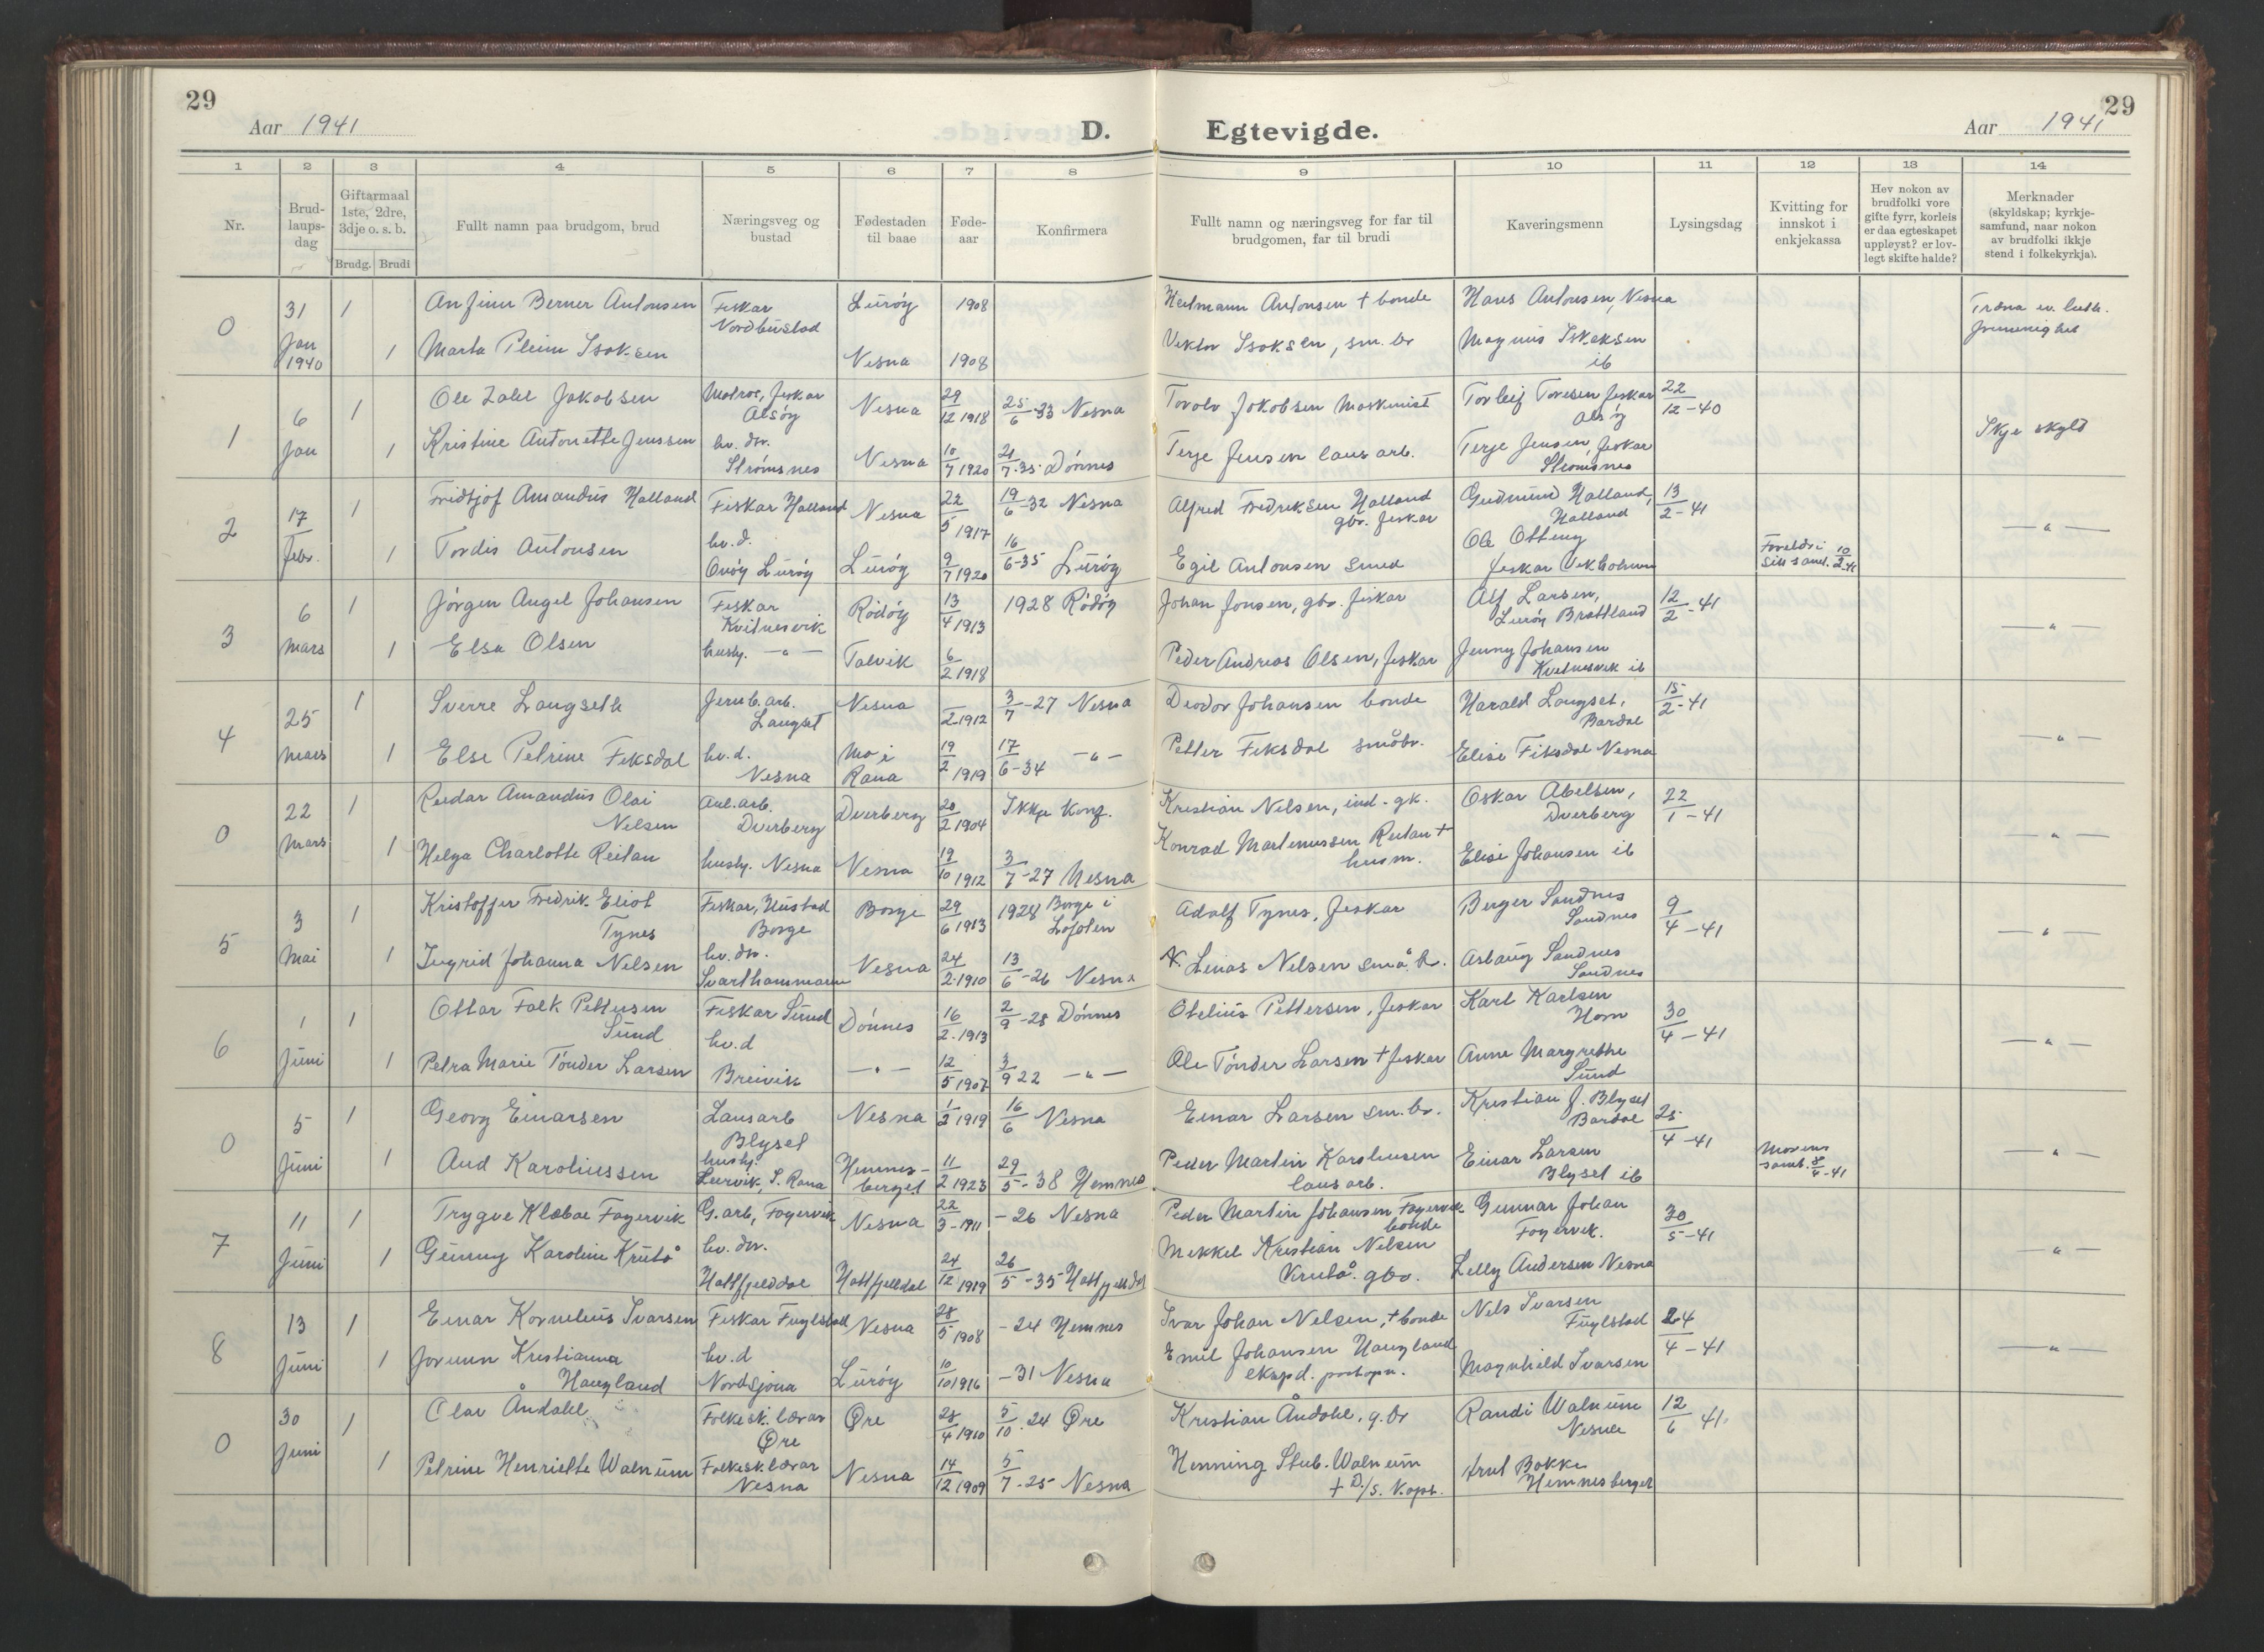 29
Aar 1941
D. Egtevigde.
Aar 1941
29
1 2 3 4 5 6 7 8 9 10 11 12 13 14
Nr.
Brud-
laups-
dag
Giftarmaal
1ste, 2dre,
3dje o. s. b.
Brudg. Brudi
Fullt namn paa brudgom, brud
Næringsveg og
bustad
Fødestaden
til baae
Føde-
aar
Konfirmera
Fullt namn og næringsveg for far til
brudgomen, far til brudi
Kaveringsmenn
Lysingsdag
Kvitting for
innskot i
enkjekassa
Hev nokon av
brudfolki vore
gifte fyrr, korleis
er daa egteskapet
uppløyst? er lov-
legt skifte halde?
Merknader
(skyldskap; kyrkje-
samfund, naar nokon
av brudfolki ikkje
stend i folkekyrkja).
0
31
Jan
1940
1 Anfinn Berner Antonsen
Fiskar
Nordbustad
Lurøy 1908
Hartmann Antonsen † bonde
Hans Antonsen, Nesna
Træna ev. luth.
1 Marta Isaksen
Nesna 1908
Viktor Isaksen, sm. br
Magnus Isaksen
ib
1
6
Jan
1 Ole Zahl Jakobsen
Matros, fiskar
Alsøy
Nesna 29/12 1918 25/6-33 Nesna
Torolv Jakobsen Maskinist
Torleif Toresen fiskar
Alsøy
22/12-40
Ikje skyld
1 Kristine Antonette Jenssen
hv. dr.
Strømsnes
Nesna 10/7 1920 21/7-35 Dønnes
Terje Jensen laus arb.
Terje Jensen, fiskar
Strømsnes
2
17
febr.
1 Fridtjof Amandus Halland
Fiskar Halland
Nesna 22/5 1917 19/6-32 Nesna
Alfred Fredriksen Halland
gbr. fiskar
Gudmund Halland,
Halland
13/2-41
— " —
1 Tordis Antonsen
hv. d.
Onøy Lurøy
Lurøy 9/7 1920 16/6-35 Lurøy
Egil Antonsen Smed
Ole Otting
fiskar Vikholmen
Foreldri
sitt saml. 10/2-41
3
6
Mars
1 Jørgen Angel Johansen
Fiskar
Kvitnesvik
Rødøy 13/4 1913 1928 Rødøy
Johan Jonsen, gbr. fiskar
Alf Larsen,
Lurøy Brattland
12/2-41
— " —
1 Elsa Olsen
hushj. — " —
Talvik 6/2 1918
Peder Andreas Olsen, fiskar
Jenny Johansen
Kvitnesvik ib
4
25
Mars
1 Sverre Langseth
Jernb. arb.
Langset
Nesna 2 1912 3/7-27 Nesna
Deodor Johansen bonde
Harald Langset,
Bardal
15/2-41
— " —
1 Else Petrine Fiksdal
hv. d.
Nesna
Mo i
Rana
19/2 1919 17/6-34 — " —
Petter Fiksdal småbr.
Elise Fiksdal Nesna
0
22
Mars
1 Reidar Amandus Olai
Nelsen
Anl. arb.
Dverberg
Dverberg 20/2 1904 Ikkje konf.
Kristian Nilsen, ind-gk.
Oskar Abelsen,
Dverberg
22/1-41
— " —
1 Helga Charlotte Reitan
hushj. Nesna
Nesna 19/10 1912 3/7-27 Nesna
Konrad Martenussen Reitan †
husm.
Elise Johansen ib
5
3
Mai
1 Kristoffer Fredrik Eliot
Tynes
Fiskar, Ustad
Borge
Borge 29/6 1913 1928 Borge i
Lofoten
Adolf Tynes, fiskar
Berger Sandnes
Sandnes
9/4-41
— " —
1 Ingrid Johanna Nelsen
hv. dr.
Svarthammaren
Nesna 24/2-1910 13/6-26 Nesna
Linas Nelsen små b.
Asbaug Sandnes
Sandnes
6
1
Juni
1 Ottar Falk Pettersen
Sund
Fiskar Sund
Dønnes 16/2-1913 2/9-28 Dønnes
Otelius Pettersen, fiskar
Karl Karlsen
Horn
30/4-41
— " —
1 Petra Marie Tønder Larsen
hv. d
Breivik
— " — 12/5 1907 3/9 22 — " —
Ole Tønder Larsen † fiskar
Anne Margrethe
Sund
0
5
Juni
1 Georg Einarsen
Lausarb
Blyset
Nesna 1/2 1919 16/6 Nesna
Einar Larsen sm. br.
Kristian J. Blyset
Bardal
25/4-41
— " —
1 Aud Karoliussen
hushj.
Leirvik, S. Rana
Hemnes-
berget
11/2 1923 29/5-38 Hemnes
Peder Martin Karoliussen
laus arb.
Einar Larsen
Blyset ib
Morens
samt. 8/4-41
7
11
Juni
1 Trygve Klæboe Fagervik
G. arb, Fagervik
Nesna 22/3-1911 -26 Nesna
Peder Martin Johansen Fagervik
bonde
Gunnar Johan
Fagervik.
30/5-41
— " —
1 Gunny Karoline Krutå
hv. dr.
Hattfjelldal
Hattfjelldal 24/12 1919 26/5-35 Hattfjelldal
Mikkel Kristian Nilsen
Krutå. gbr.
Lilly Andersen Nesna
8
13
Juni
1 Einar Kornelius Ivarsen
Fiskar Fuglstad
Nesna 28/5 1908 -24 Hemnes
Ivar Johan Nelsen, † bonde
Nels Ivarsen
Fuglstad
24/4-41
— " —
1 Jorunn Kristianna
Haugland
hv. d
Nordsjona
Lurøy 10/10 1916 -31 Nesna
Emil Johansen Haugland
eksp.d. postopn.
Magnhild Ivarsen
0
30
Juni
1 Olav Åndahl
Folkesk. lærar
Øre
Øre 28/4 1910 5/10-24 Øre
Kristian Åndahl, g. br
Randi Walnum
Nesna
12/6 41.
1 Petrine Henriette Walnum
Folkesk. lærar
Nesna
Nesna 14/12 1909 5/7-25 Nesna
Henning Stub. Walnum
† D/S. Kapt.
Bakke
Hemnesberget